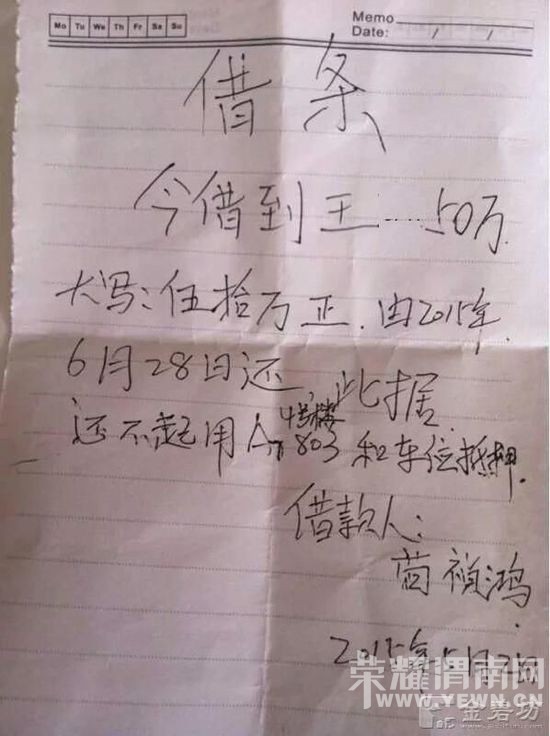 Mo Tu We Th Fr Sa Su
Memo
Date: / /
借条
今借到王......50万
大写:伍拾万正.由2015年
6月28日还,此据
4号楼
还不起用A 803和车位抵押.
借款人:
祯鸿.
2015年5月2
荣耀渭南网
WWW.YEWN.CN